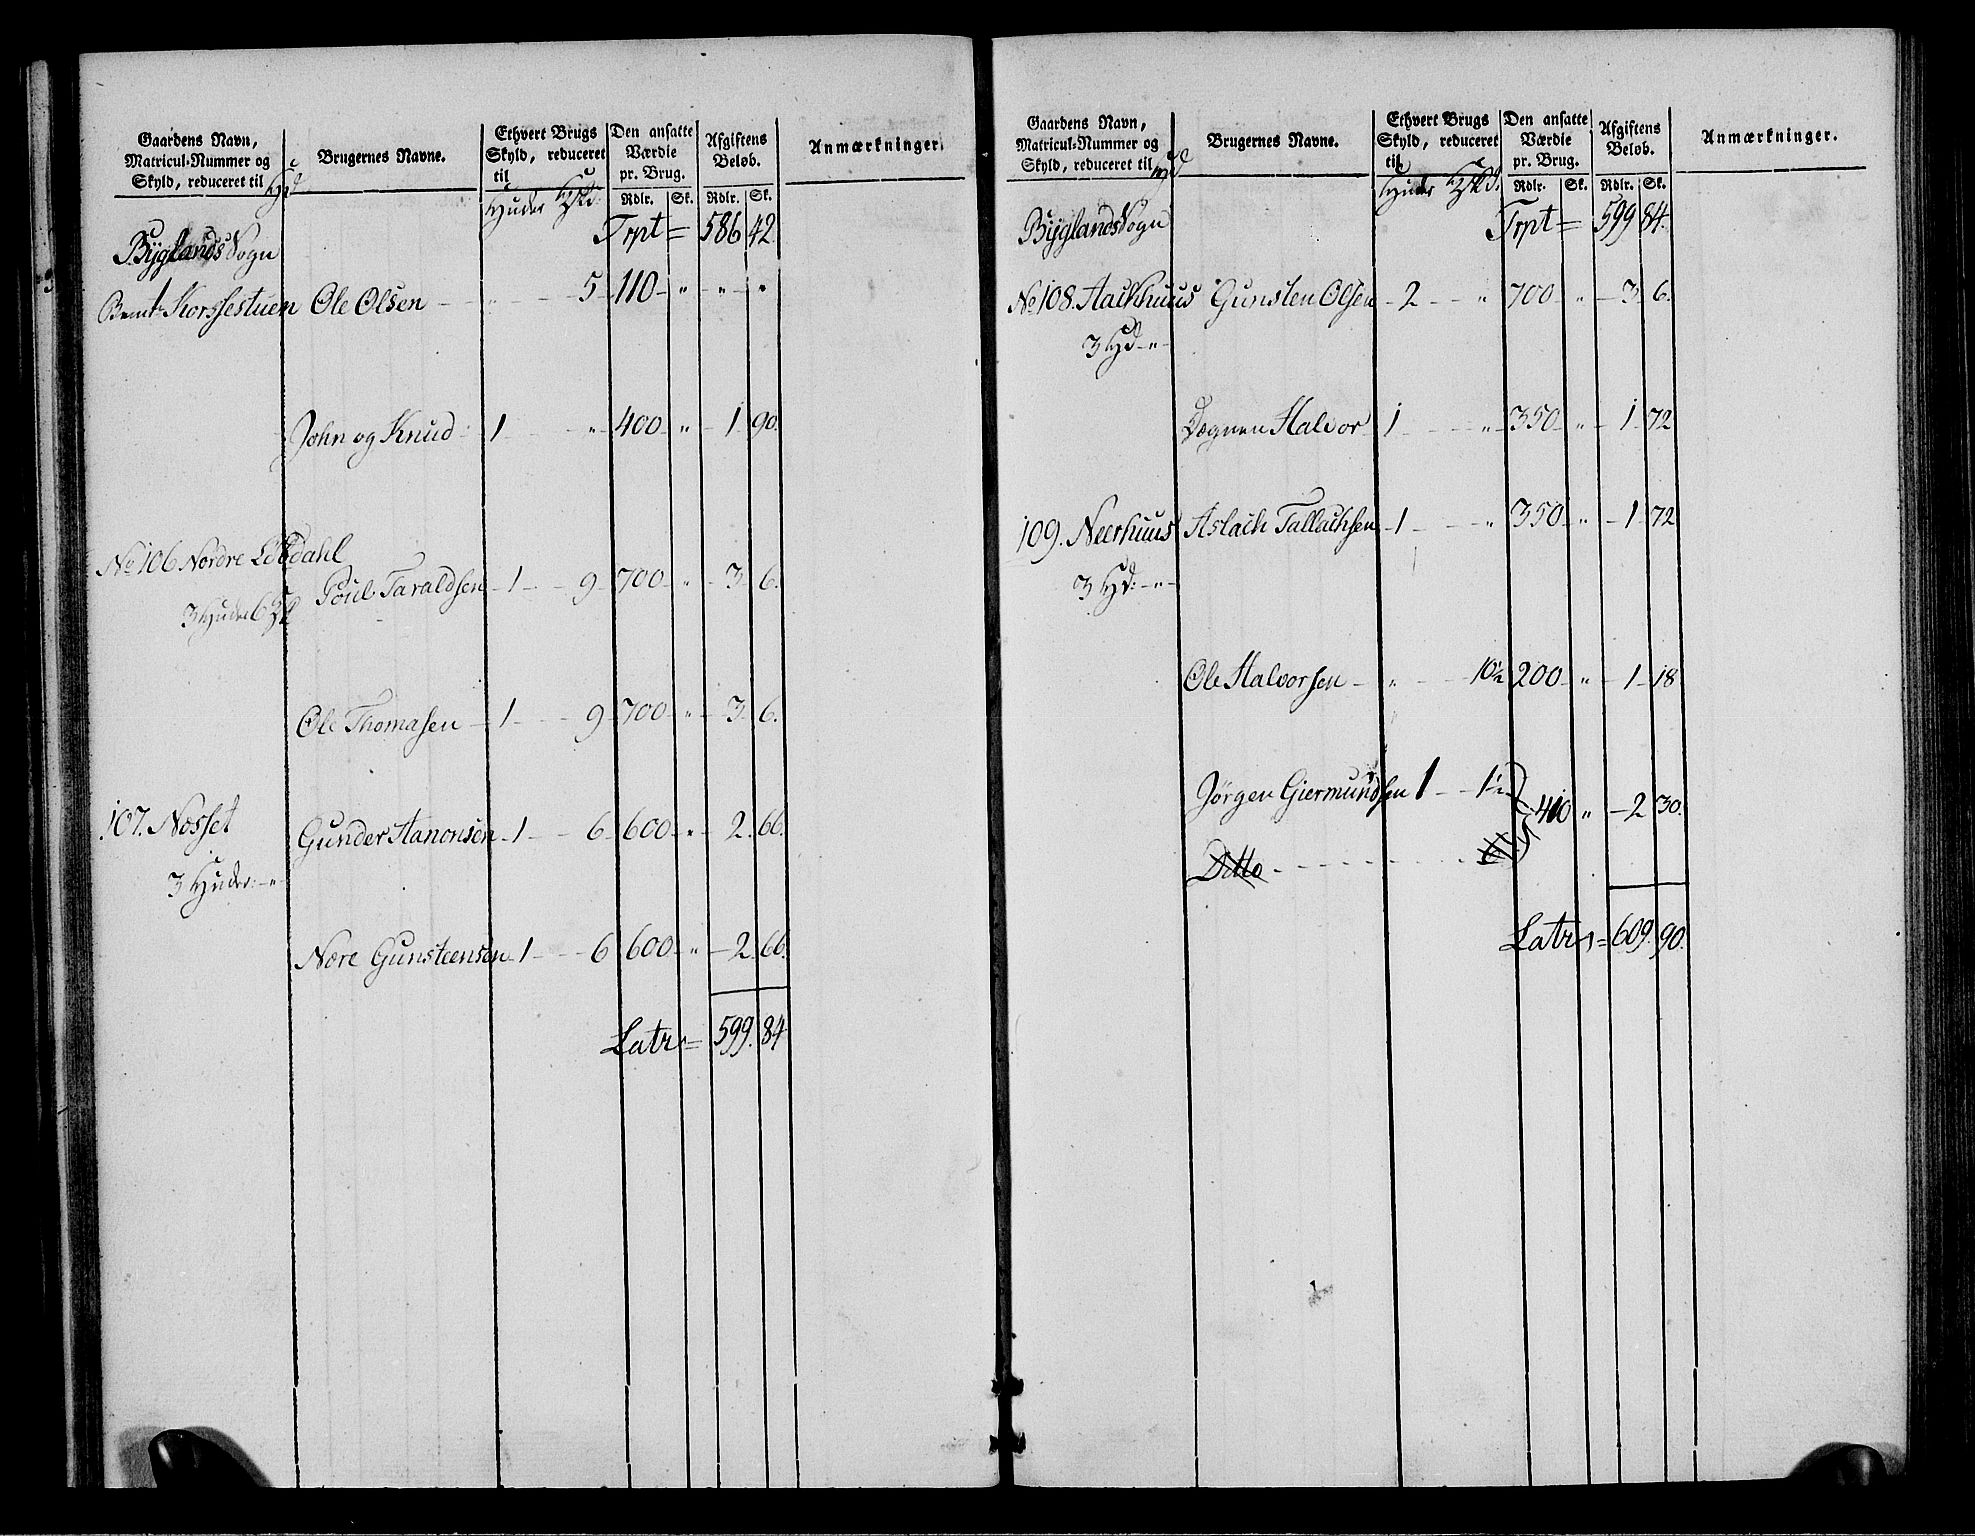 Gaardens Navn,
Matricul-Nummer og
Skyld, reduceret til
Hd
Brugernes Navne.
Ethvert Brugs
Skyld, reduceret
til
Huder
Den ansatte
Værdie
pr. Brug.
Rdlr. Sk.
Afgiftens
Beløb.
Rdlr. Sk.
Anmærkninger.
Byglands Sogn Trpt = 586 42.
Korssestuen Ole Olsen - " - 5 - 110 - " - " - "
John og Knud - 1 - " - 400 - " - 1 - 90.
No 106 Nordre Løbdahl
3 Huder 6 Poul Taraldsen - 1 - 9 - 700 - " - 3 - 6.
Ole Thomasen - 1 - 9 - 700 - " - 3 - 6.
107. Næsset Gunder Aanonsen - 1 - 6 - 600 - " - 2 - 66.
3 Huder: - " -
Nore Gunsteensen - 1 - 6 - 600 - " - 2 - 66.
Latr = 599. 84
Gaardens Navn,
Matricul-Nummer og
Skyld, reduceret til
Hd
Brugernes Navne.
Ethvert Brugs
Skyld, reduceret
til
Huder
Den ansatte
Værdie
pr. Brug.
Rdlr. Sk.
Afgiftens
Beløb.
Rdlr. Sk.
Anmærkninger.
Byglands Sogn Trpt = 599 84.
No 108. Aakhuus Gunsten Olsen - 2 - " - 700 - " - 3 - 6.
3 Hd - " -
Halvor - 1 - " - 350 - " - 1 - 72
109. Neerhuus Aslach Tallachsen - 1 - " - 350 - " - 1 - 72
3 Hd: - " -
Ole Halvorsen - " - 10½ 200 - " - 1 - 18
Jørgen Giermundsen 1 - 1½ 410 " - 2 30.
Ditto
Latr = 609. 90.